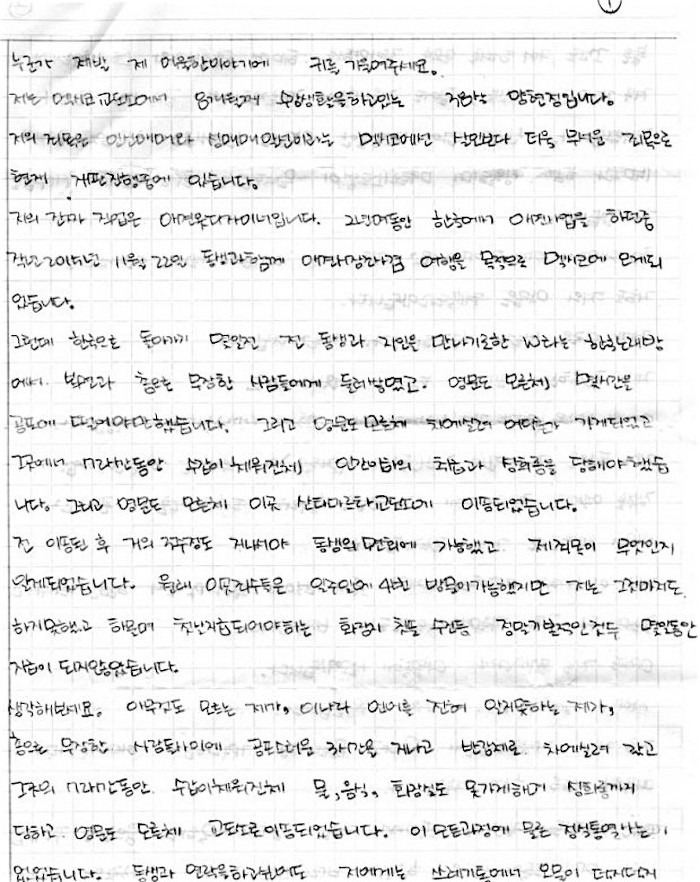 ①
누군가 제발 제 억울한이야기에 귀를 기울여주세요.
저는 멕시코교도소에서 8개월째 수감생활을하고있는 38살 양현정입니다.
저의 죄목은 인신매매와 성매매알선이라는 멕시코에선 살인보다 더욱 무서운 죄목으로
현재 재판진행중에 있습니다.
저의 진짜 직업은 애견옷디자이너입니다. 20년여동안 한국에서 애견사업을 하던중
작년 2015년 11월 22일 동생과함께 시장조사겸 여행을 목적으로 멕시코에 오게되
었습니다.
그런데 한국으로 돌아가기 몇일전 전 동생과 지인을 만나기로한 W라는 한국노래방
에서 복면과 총으로 무장한 사람들에게 둘러쌓였고. 영문도 모른체 몇시간을
공포에 떨어야만했습니다. 그리고 영문도모른체 차에실려 어딘가 가게되었고
그곳에서 시간동안 수갑이 채워진체 인간이하의 취급과 성희롱을 당해야했습
니다. 그리고 영문도 모른체 이곳 산타마르타교도소에 이송되었습니다.
전 이송된 후 거의 정도 지나서야 동생의면회에 가능했고 제죄목이 무엇인지
알게되었습니다. 원래 이곳죄수들은 일주일에 4번 방문이가능했지만 저는 그것마저도
하지못했고 하물며 첫날지급되어야하는 화장지 칫솔 수건등 정말기본적인것두 몇일동안
지급이 되지않았습니다.
생각해보세요. 아무것도 모르는 제가, 이나라 언어를 전혀 알지못하는 제가,
총으로 무장한 사람들사이에 공포스러운 시간을 지나고 반강제로 차에실려 갔고
그곳의 시간동안 수갑이채워진체 물,음식, 화장실도 못가게하며 성희롱까지
당하고 영문도 모른체 교도소로이송되었습니다. 이모든과정에 물론 정식통역사는
없었습니다. 동생과 연락을하고싶어도 저에게는 쓰레기통에서